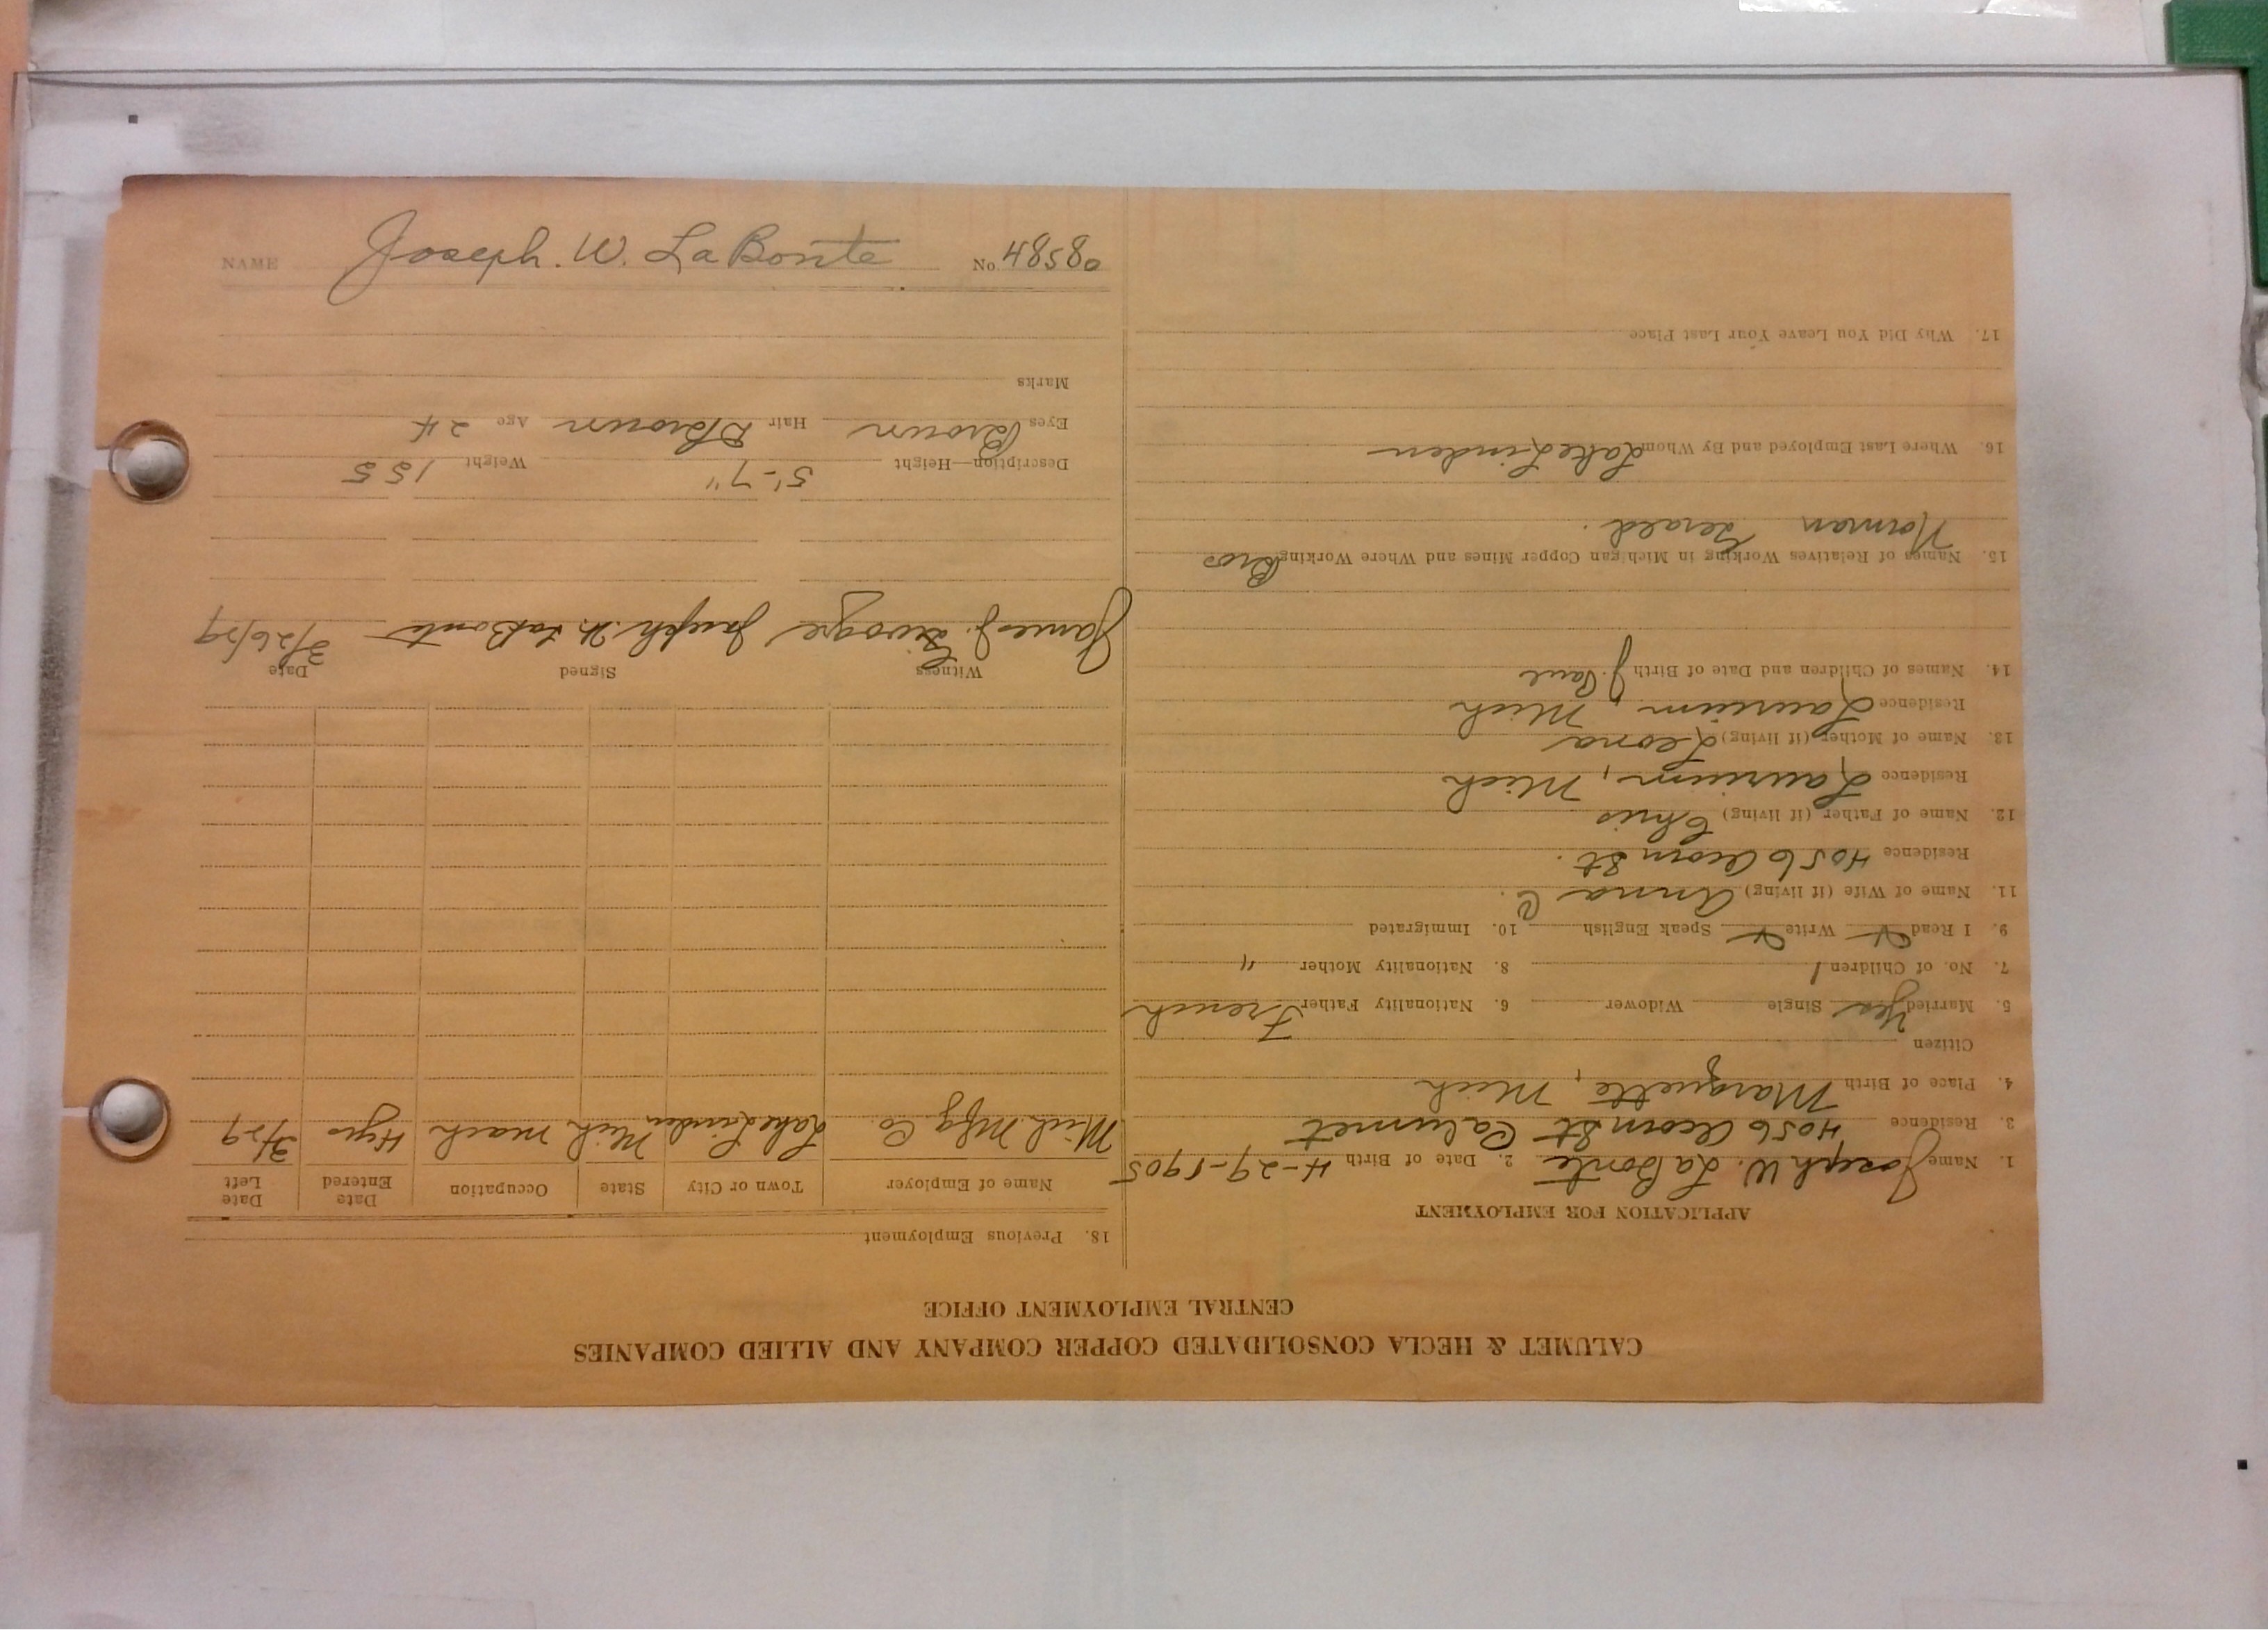 CALUMET & HECLA CONSOLIDATED COPPER COMPANY AND ALLIED COMPANIES
CENTRAL EMPLOYMENT OFFICE
APPLICATION FOR EMPLOYMENT
1. Name Joseph W. LaBonte 2. Date of Birth 4-29-1905
3. Residence 4056 Acorn St Calumet
4. Place of Birth Marquette, Mich
Citizen
5. Married Yes Single Widower 6. Nationality Father French
7. No. of Children 1 8. Nationality Mother "
9. I Read Write Speak English 10. Immigrated
11. Name of Wife (if living) Anna C.
Residence 4056 Acorn St.
12. Name of Father (if living) Chris
Residence Laurium, Mich
13. Name of Mother (if living) Leona
Residence Laurium, Mich
14. Names of Children and Date of Birth J. Paul
15. Names of Relatives Working in Michigan Copper Mines and Where Working Bros
Norman Gerald.
16. Where Last Employed and By Whom Lake Linden
17. Why Did You Leave Your Last Place
18. Previous Employment
Name of Employer Town or City State Occupation Date Entered Date Left
Mich Mfg Co. Lake Linden Mich mach 4yrs 3/29
Witness Signed Date
James J. Joseph W. LaBonte 3/26/29
Description—Height 5'-7" Weight 155
Eyes Brown Hair D Brown Age 24
Marks
NAME Joseph. W. LaBonte No. 48580